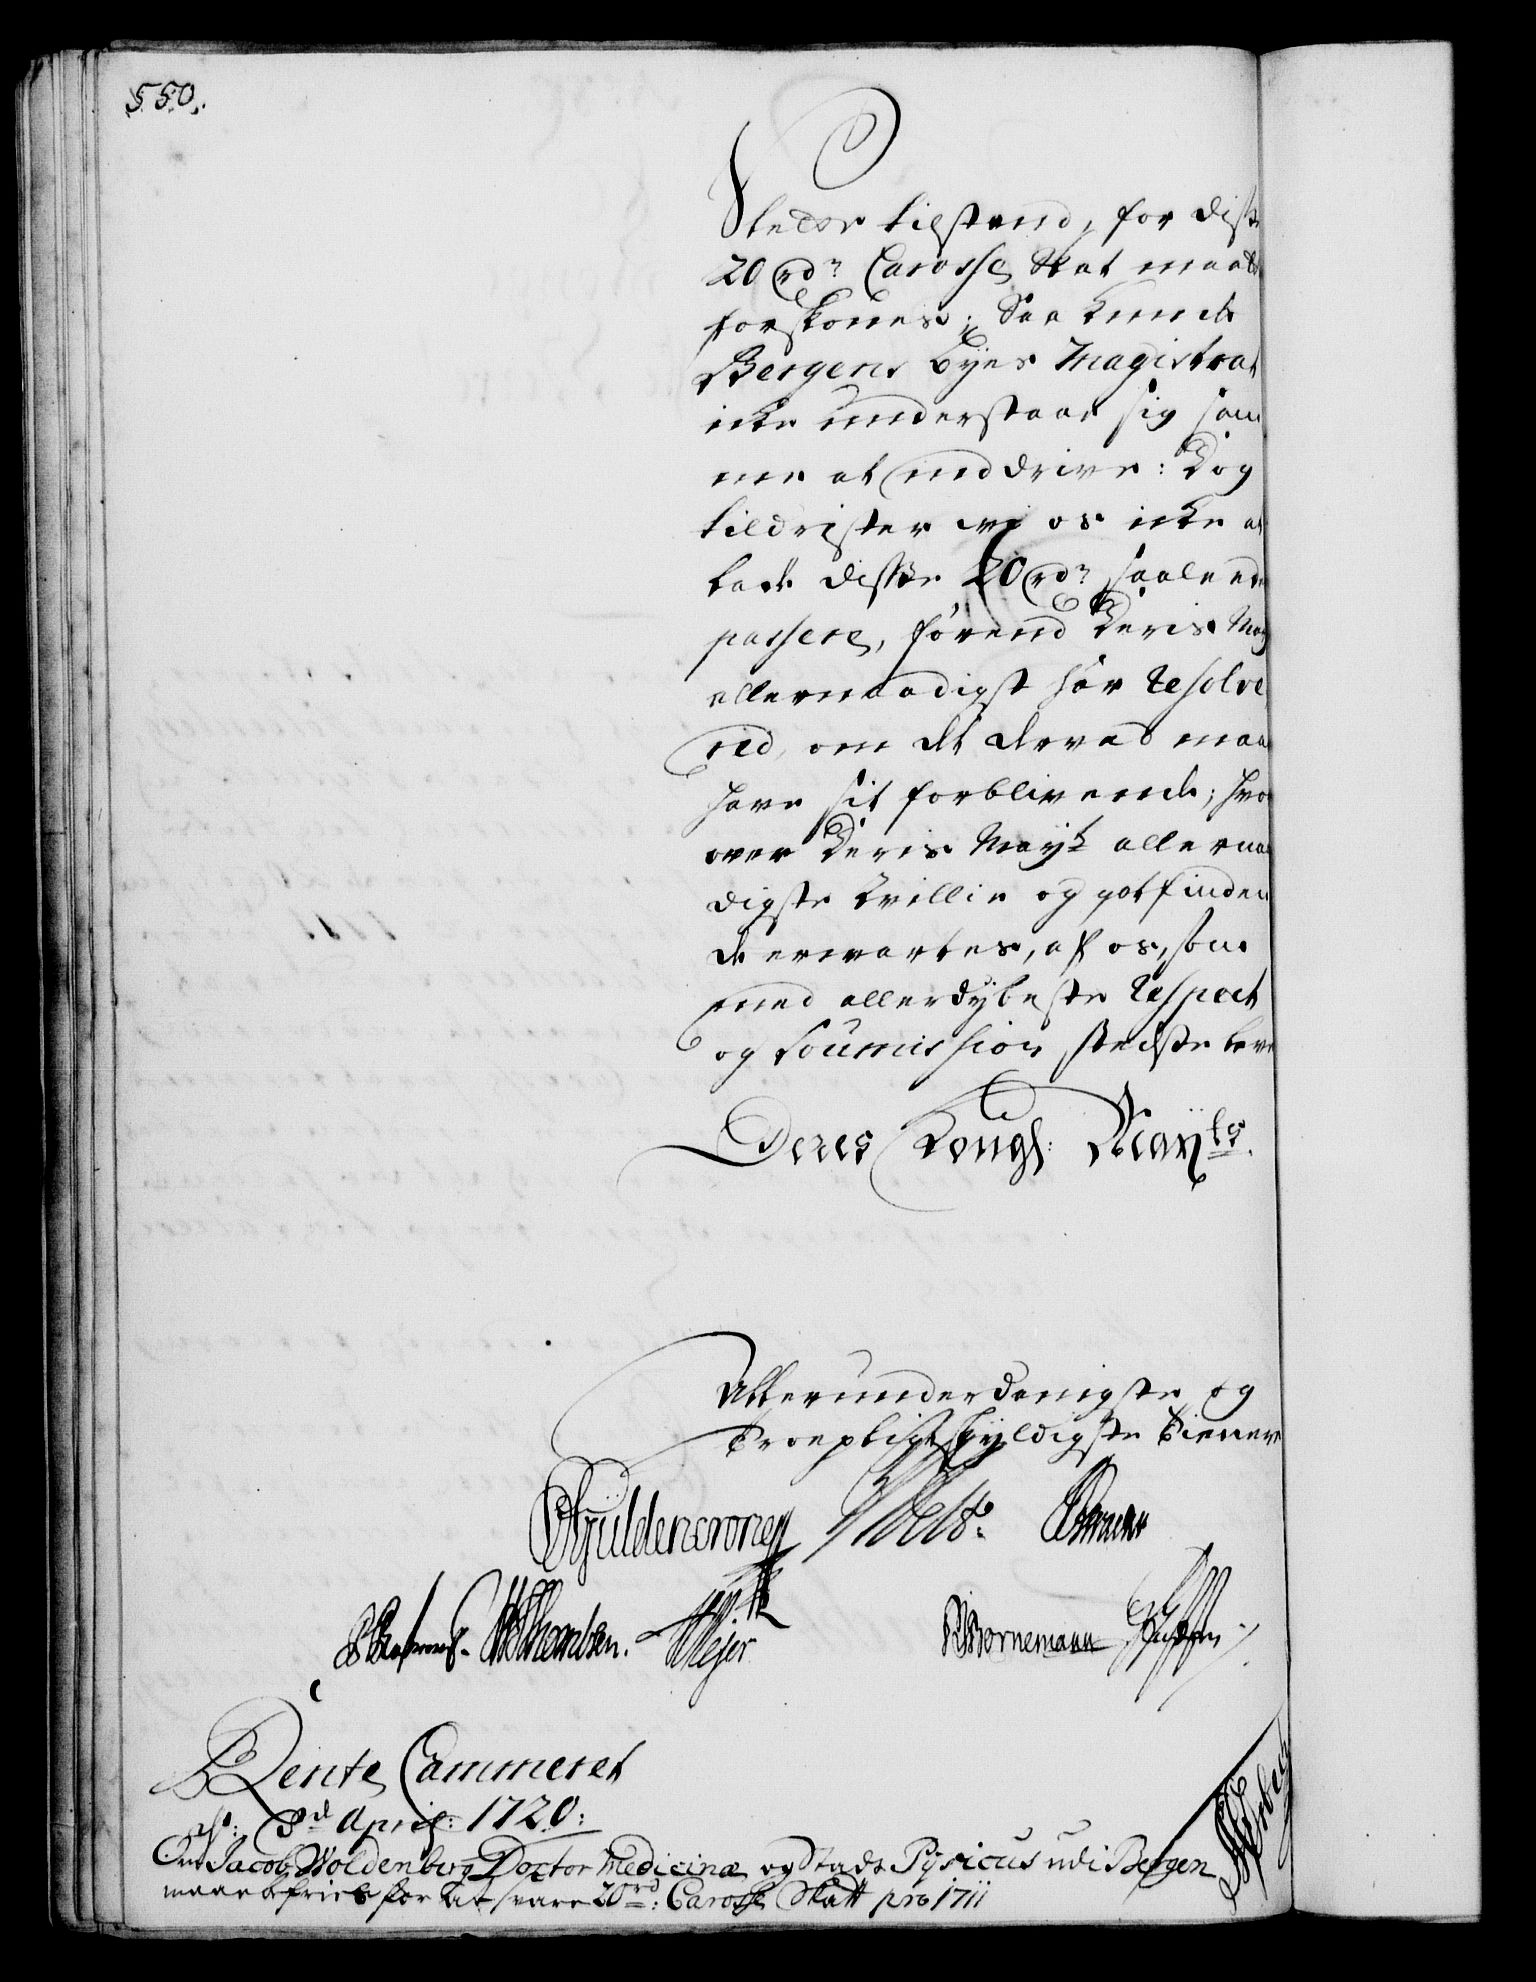 550.
steds tilstand, for disse
20 rdr Carosse Skat maatte
forskones; Saa kunde
Bergens Byes Magistrat
icke understaae sig sam¬
me at inddrive: Dog
tildrister vi os icke at
lade disse 20 rdr saaleedes
passere, førend Deris May
allernaadigst har Resolve
red, om det derved maa
have sit forblivende; hvor
over Deris Mayts allernaa
digste Villie og gotfinden
de erwartes, af os, som
med allerdybeste Respect
og Soumission stedse leve
Deres Kongl: Mayts.
Allerunderdanigste og
Troepligtskyldigste Tienere
Gyldencrone
WThomsen. Meyer BBornemann
Rente Cammeret
d: 3d April: 1720:
Om Jacob Woldenberg Doctor Medicinæ og Stads Pysicus udi Bergen
maae befries for at svare 20 rd: Carosse Skatt pro 1711